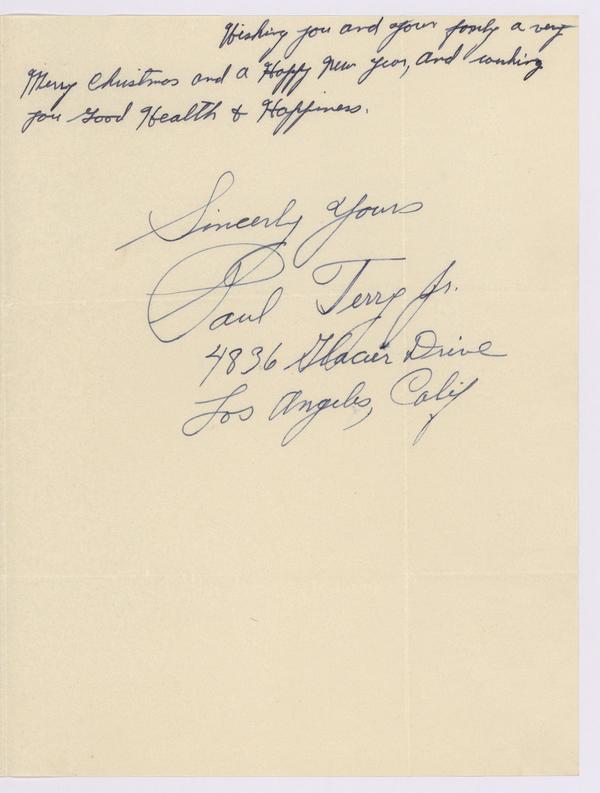 Wishing you and your family a very
Merry Christmas and a Happy New Year, and wishing
you Good Health & Happiness.
Sincerly Yours
Paul Terry Jr.
4836 Glacier Drive
Los Angeles, Calif